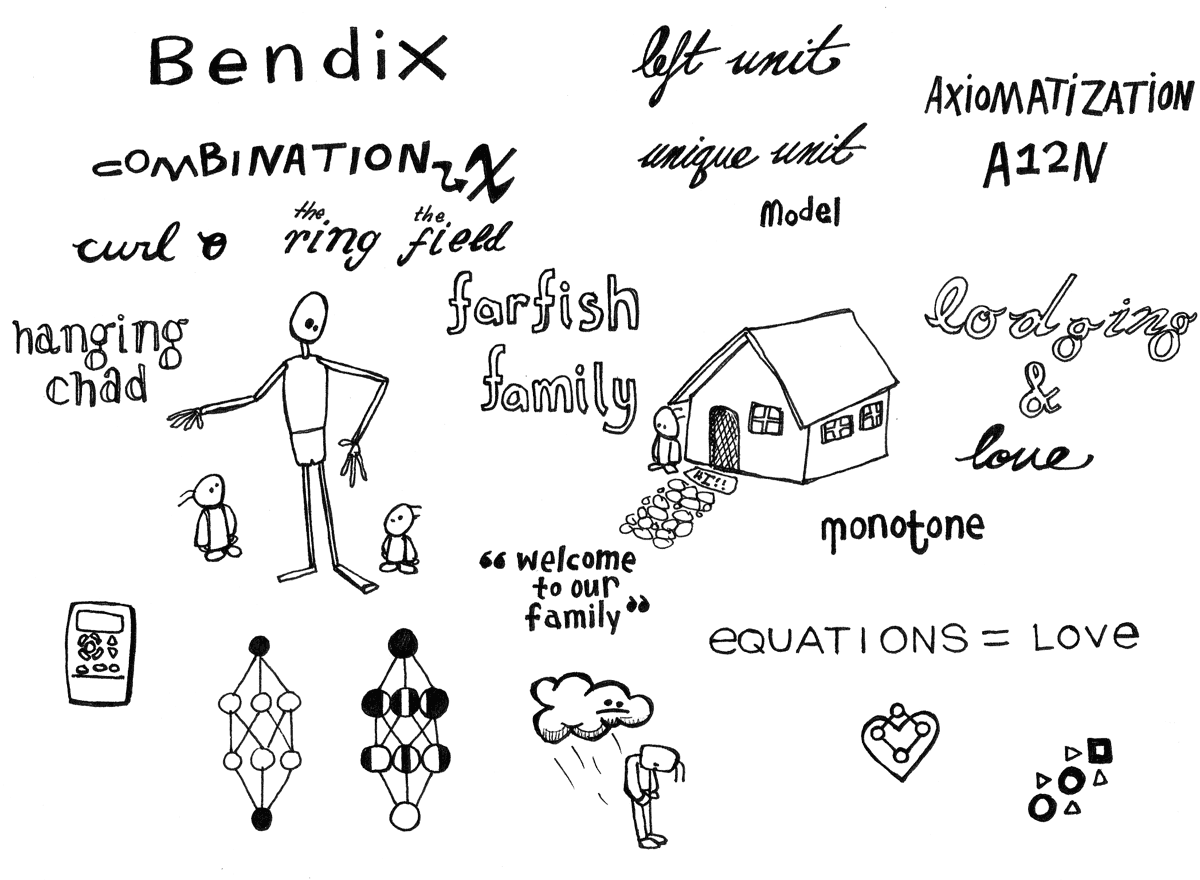 Bendix
left unit
AXIOMATIZATION
COMBINATION
unique unit
A12N
model
curl
the ring
the field
hanging
chad
farfish
family
lodging
&
love
HI!!
monotone
“welcome
to our
family”
eQUATIONS = LOVe